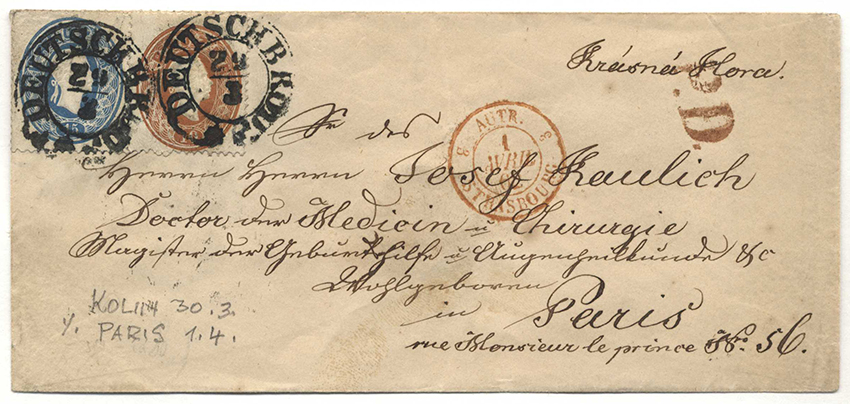 DEUTSCHBROD
29
3
15
DEUTSCHBROD
29
3
Krásná Hora.
P.D.
3 AUTR. 3
1
AVRIL
STRASBOURG
Sr des
Herrn Herrn Josef Kaulich
Doctor der Medicin u Chirurgie
Magister der Geburtshilfe u Augenheilkunde &c
Wohlgeboren
in Paris
rue Monsieur le prince No. 56.
KOLIN 30.3.
PARIS 1.4.